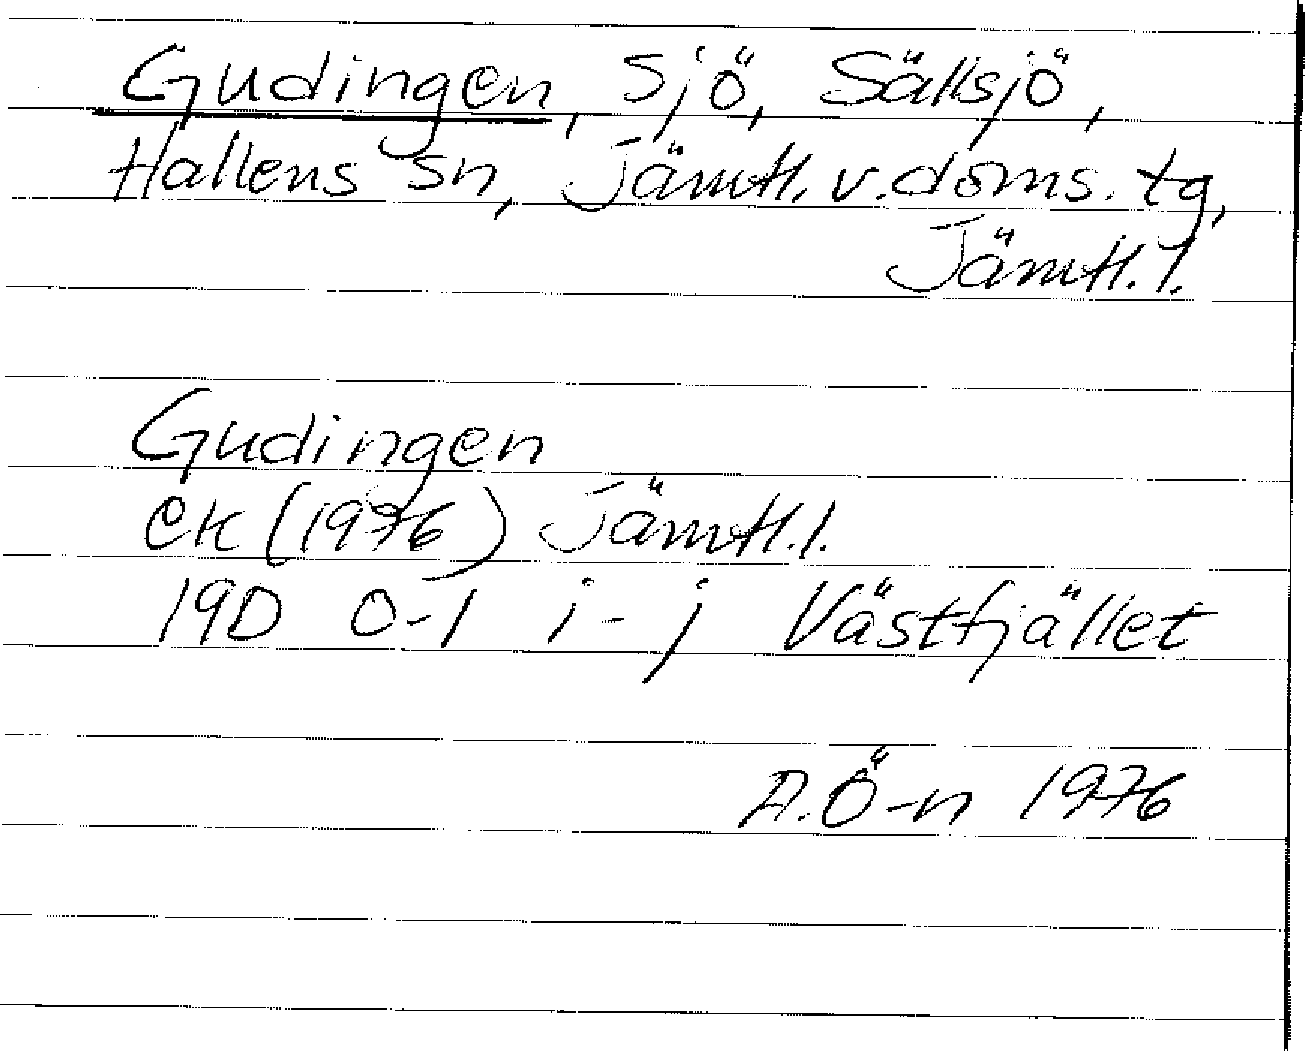 Gudingen, sjö, Sällsjö,
Hallens sn, Jämtl. v. doms. tg,
Jämtl. l.
Gudingen
ek (1976) Jämtl. l.
19D 0-1 i-j Västfjället
A.Ö-n 1976